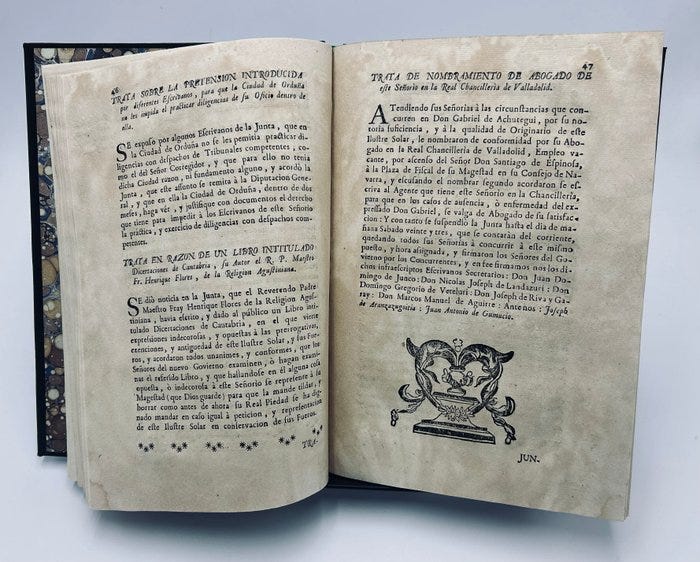 46
TRATA SOBRE LA PRETENSION INTRODUCIDA
por diferentes Escrivanos, para que la Ciudad de Orduña
no les impida el practicar diligencias de su Oficio dentro de
ella.
SE expuso por algunos Escrivanos de la Junta, que en
la Ciudad de Orduña no se les permitia practicar di-
ligencias con despachos de Tribunales competentes, co-
mo el del Señor Corregidor, y que para ello no tenia
dicha Ciudad razon, ni fundamento alguno, y acordò la
Junta, que este assunto se remita à la Diputacion Gene-
ral, y que en ella la Ciudad de Orduña, dentro de dos
meses, haga vèr, y justifique con documentos el derecho
que tiene para impedir à los Escrivanos de este Señorio
la practica, y exercicio de diligencias con despachos com-
petentes.
TRATA EN RAZON DE UN LIBRO INTITULADO
Dicertaciones de Cantabria, su Autor el R. P. Maestro
Fr. Henrique Flores, de la Religion Agustiniana.
SE diò noticia en la Junta, que el Reverendo Padre
Maestro Fray Henrique Flores de la Religion Agus-
tiniana, havia escrito, y dado al público un Libro inti-
tulado Dicertaciones de Cantabria, en el que viene
expresiones indecorosas, y opuestas à las prerrogativas,
exenciones, y antiguedad de este Ilustre Solar, y sus Fue-
ros, y acordaron todos unanimes, y conformes, que los
Señores del nuevo Govierno examinen, ò hagan exami-
nar el referido Libro, y que hallandose en èl alguna cosa
opuesta, ò indecorosa à este Señorio se represente à la
Magestad (que Dios guarde) para que la mande tildar, y
borrar como antes de ahora su Real Piedad se ha dig-
nado mandar en caso igual à peticion, y representacion
de este Ilustre Solar en conservacion de sus Fueros.
TRA-
47
TRATA DE NOMBRAMIENTO DE ABOGADO DE
este Señorio en la Real Chancilleria de Valladolid.
ATendiendo sus Señorias à las circunstancias que con-
curren en Don Gabriel de Achutegui, por su no-
toria suficiencia, y à la qualidad de Originario de este
Ilustre Solar, le nombraron de conformidad por su Abo-
gado en la Real Chancilleria de Valladolid, Empleo va-
cante, por ascenso del Señor Don Santiago de Espinosa,
à la Plaza de Fiscal de su Magestad en su Consejo de Nava-
rra, y escusando el nombrar segundo acordaron se es-
criva al Agente que tiene este Señorio en la Chancilleria,
para que en los casos de ausencia, ò enfermedad del ex-
pressado Don Gabriel, se valga de Abogado de su satisfac-
cion: Y con tanto se suspendiò la Junta hasta el dia de ma-
ñana Sabado veinte y tres, que se contaràn del corriente,
quedando todos sus Señorias à concurrir à este mismo
puesto, y hora asignada, y firmaron los Señores del Go-
vierno por los Concurrentes, y en fee firmamos nos los di-
chos infraescriptos Escrivanos Secretarios: Don Juan Do-
mingo de Junco: Don Nicolas Joseph de Landazuri: Don
Domingo Gregorio de Vereluri: Don Joseph de Riva y Ga-
ray: Don Marcos Manuel de Aguirre: Antenos: Joseph
de Aranzazugutia: Juan Antonio de Gumucio.
JUN-